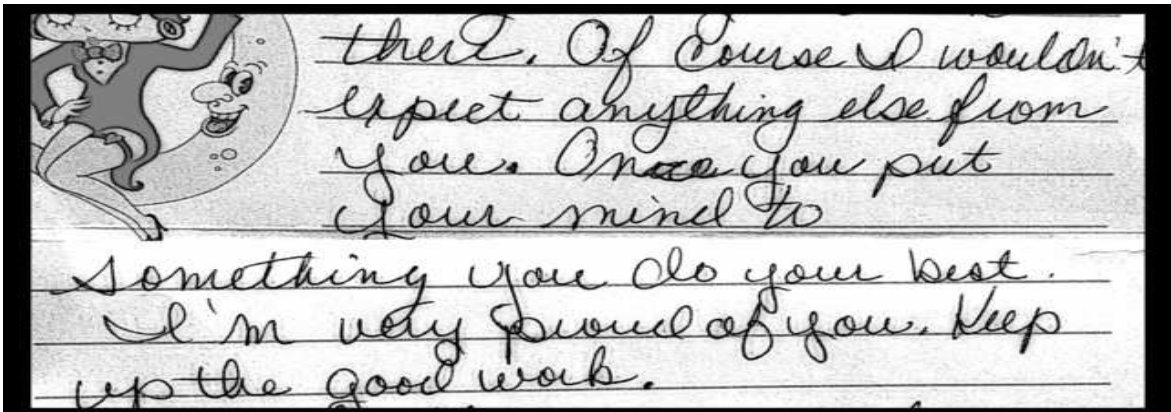 there. Of Course I wouldn't
expect anything else from
you. Once you put
your mind to
something you do your best.
I'm very proud of you. Keep
up the good work.